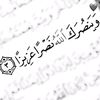 وَيَنصُرَكَ ٱللَّهُ نَصْرًا عَزِيزًا ٣